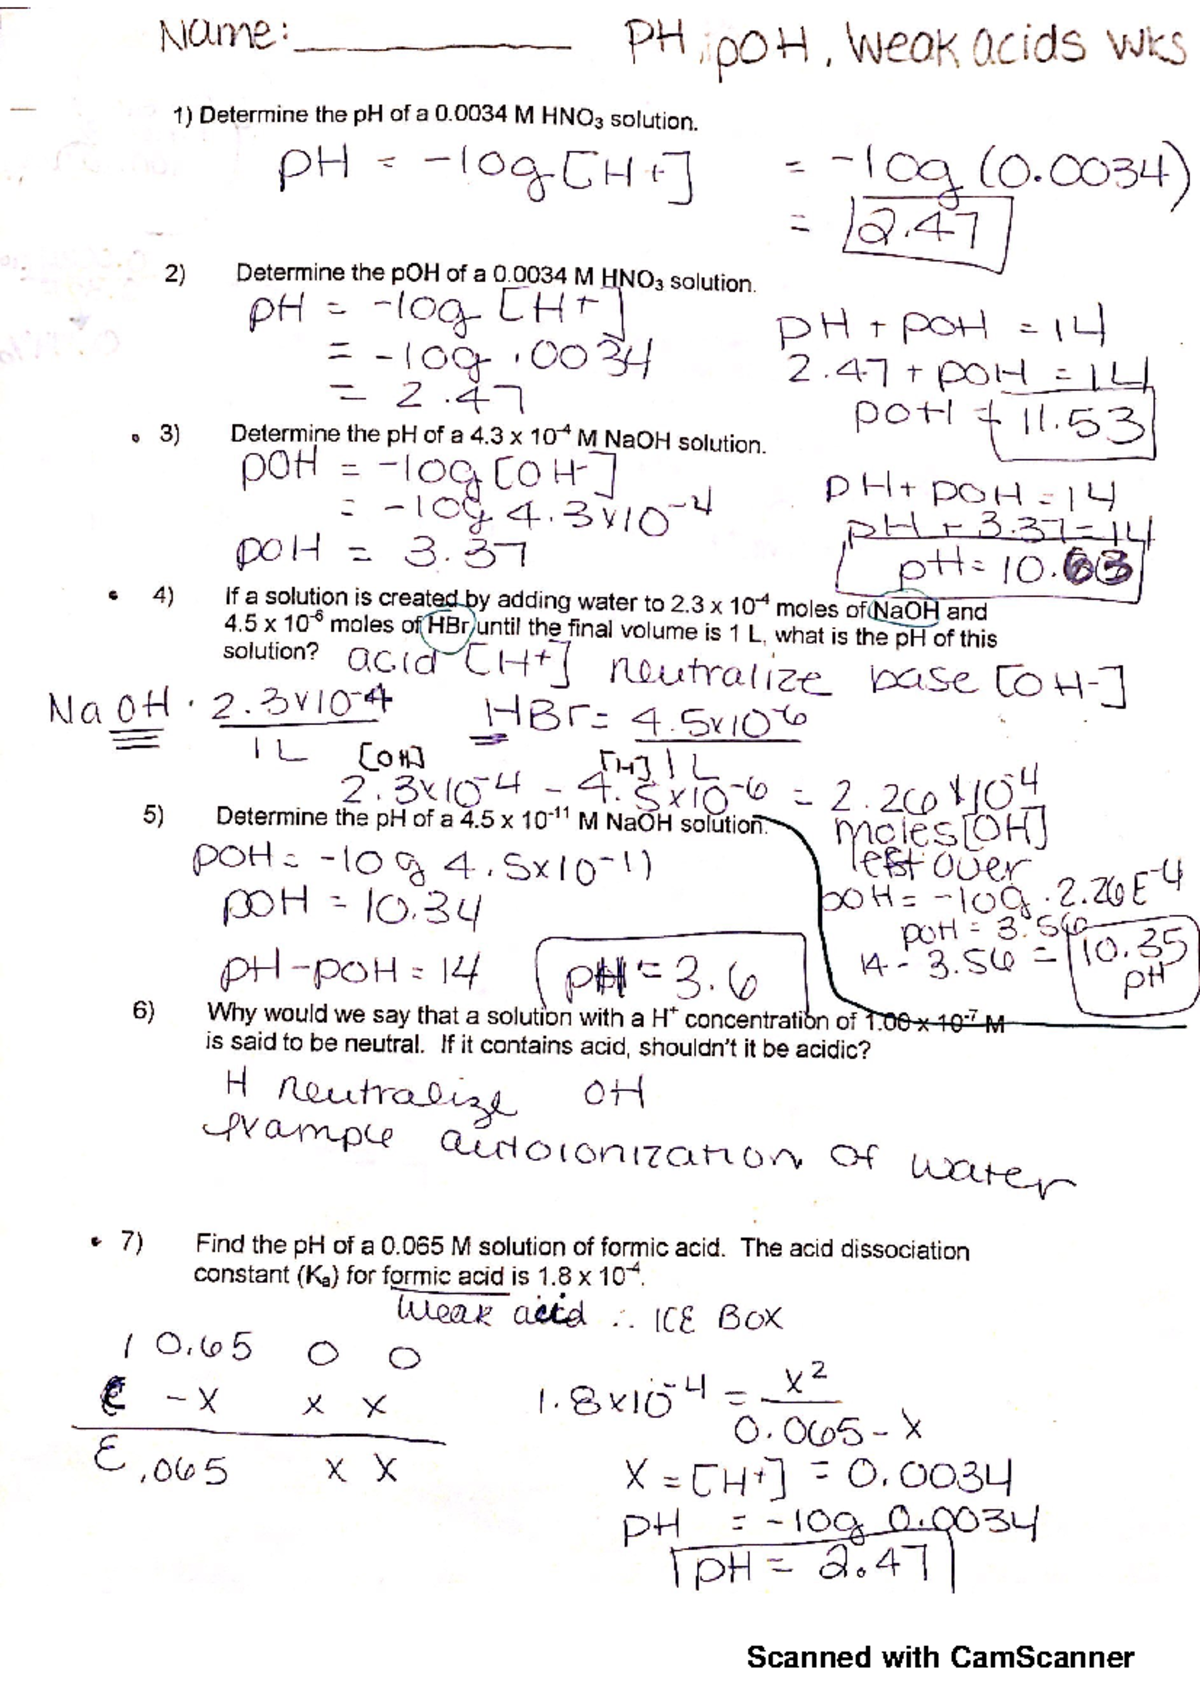 Name: ____________ PH, pOH, Weak acids wks
1) Determine the pH of a 0.0034 M HNO3 solution.
pH = -log[H+] = -log(0.0034)
= 2.47
2) Determine the pOH of a 0.0034 M HNO3 solution.
pH = -log [H+]
= -log .0034
= 2.47
pH + pOH = 14
2.47 + pOH = 14
pOH = 11.53
3) Determine the pH of a 4.3 x 10⁻⁴ M NaOH solution.
pOH = -log[OH-]
= -log 4.3x10⁻⁴
pOH = 3.37
pH + pOH = 14
pH + 3.37 = 14
pH = 10.63
4) If a solution is created by adding water to 2.3 x 10⁻⁴ moles of NaOH and
4.5 x 10⁻⁶ moles of HBr until the final volume is 1 L, what is the pH of this
solution? acid [H+] neutralize base [OH-]
NaOH · 2.3x10⁻⁴ HBr = 4.5x10⁻⁶
1L [OH] [H] 1L
2.3x10⁻⁴ - 4.5x10⁻⁶ = 2.26x10⁻⁴
moles [OH]
left over
pOH = -log · 2.26E⁻⁴
pOH = 3.56
14 - 3.56 = 10.35
pH
5) Determine the pH of a 4.5 x 10⁻¹¹ M NaOH solution.
pOH = -log 4.5x10⁻¹¹
pOH = 10.34
pH-pOH = 14 pH = 3.6
6) Why would we say that a solution with a H⁺ concentration of 1.00 x 10⁻⁷ M
is said to be neutral. If it contains acid, shouldn't it be acidic?
H neutralize OH
example autoionization of water
7) Find the pH of a 0.065 M solution of formic acid. The acid dissociation
constant (Ka) for formic acid is 1.8 x 10⁻⁴.
Weak acid ∴ ICE BOX
I 0.65 0 0
C -x x x
E .065 x x
1.8x10⁻⁴ = x²
0.065-x
X = [H+] = 0.0034
pH = -log 0.0034
pH = 2.47
Scanned with CamScanner